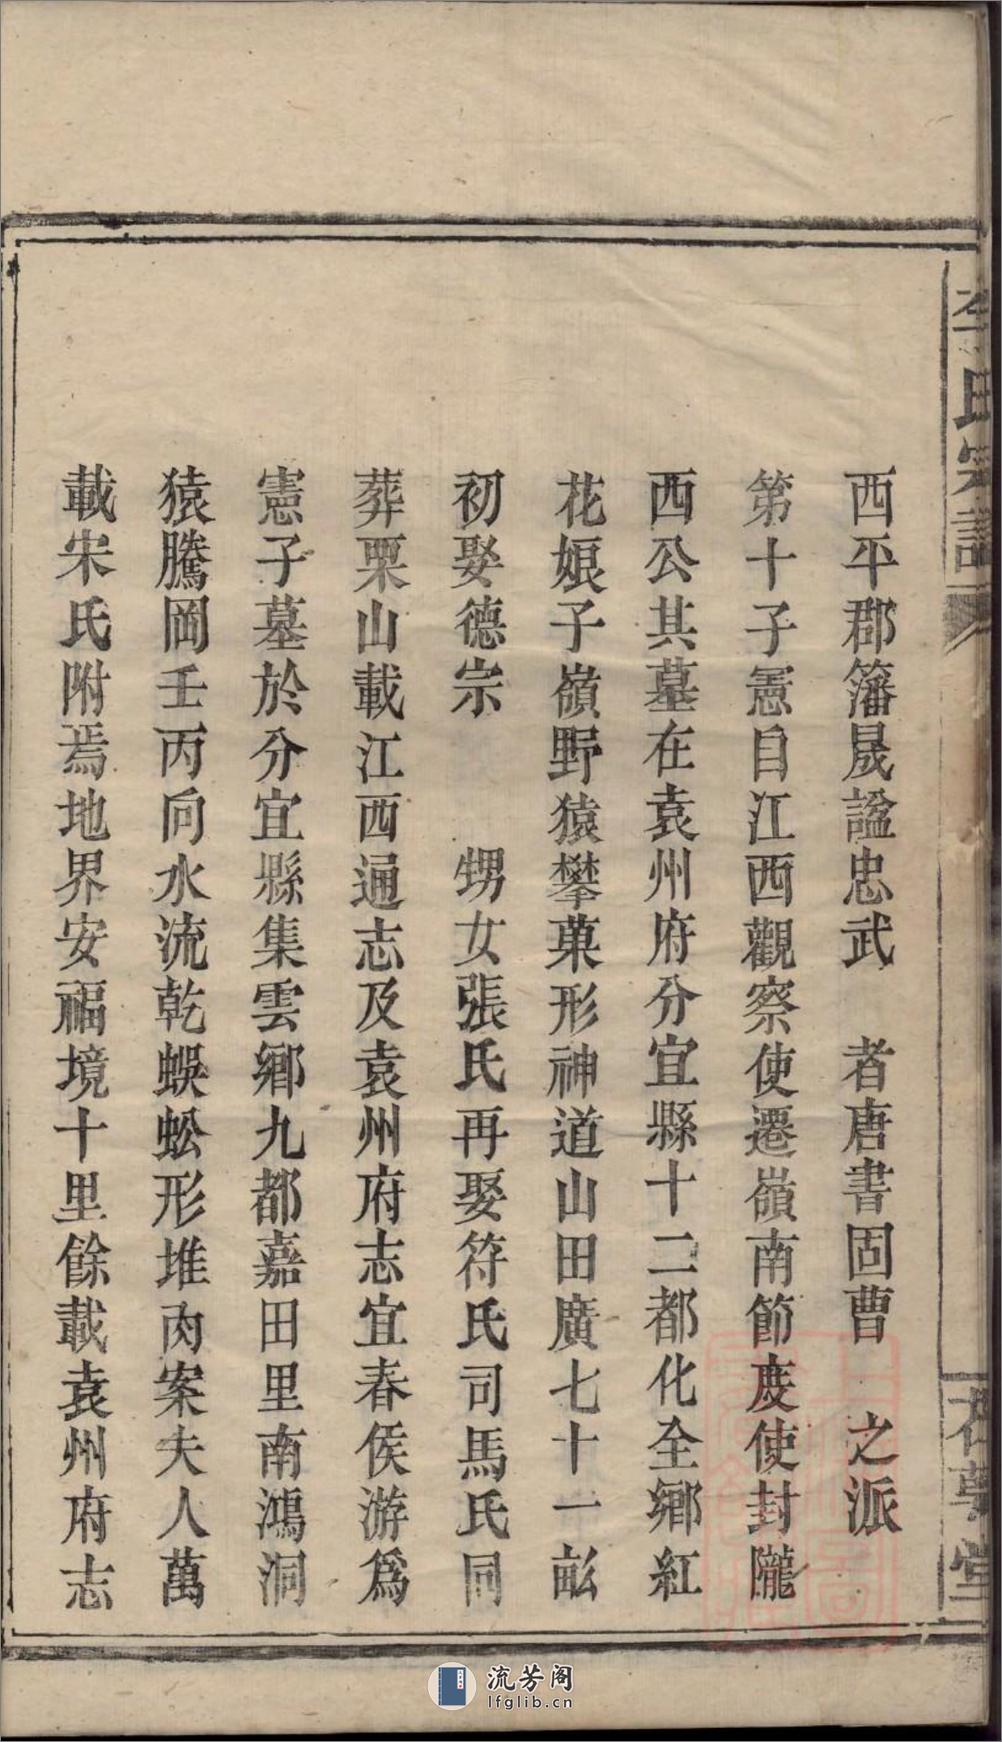 李氏宗譜
西平郡籓晟諡忠武 者唐書固曹 之派
第十子憲自江西觀察使遷嶺南節度使封隴
西公其墓在袁州府分宜縣十二都化全鄉紅
花娘子嶺野猿攀菓形神道山田廣七十一畝
初娶德宗 甥女張氏再娶符氏司馬氏同
葬栗山載江西通志及袁州府志宜春侯游爲
憲子墓於分宜縣集雲鄉九都嘉田里南鴻洞
猿騰岡壬丙向水流乾蜈蚣形堆內案夫人萬
載宋氏附焉地界安福境十里餘載袁州府志
堂
流芳阁
lfglib.cn